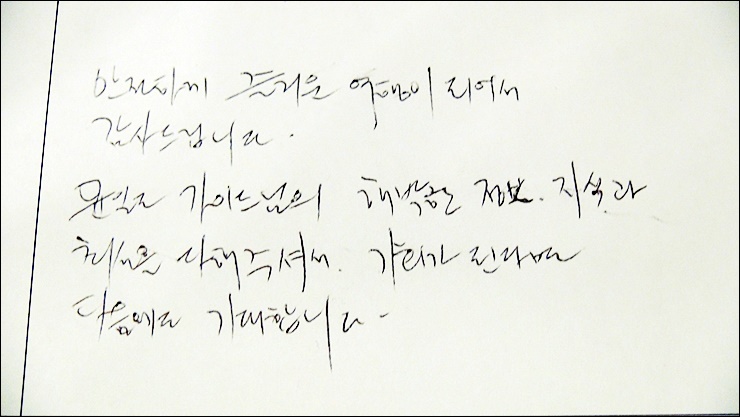 안전하게 즐거운 여행이 되어서
감사드립니다.
가이드님의 해박한 정보. 지식과
최선을 다해주셔서. 기회가 된다면
다음에도 기대합니다.